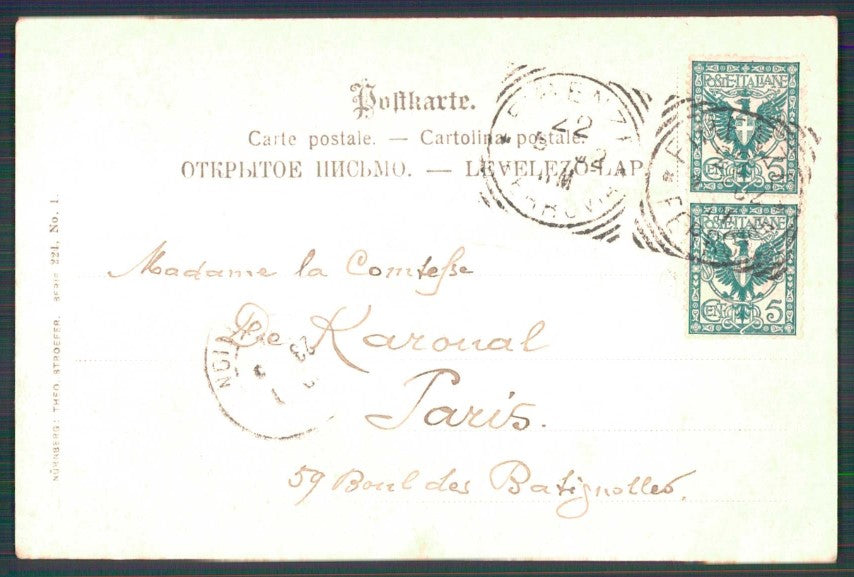 Postkarte.
Carte postale. — Cartolina postale.
ОТКРЫТОЕ ПИСЬМО. — LEVELEZÖ-LAP.
POSTE ITALIANE
CENT. 5
POSTE ITALIANE
CENT. 5
FIRENZE
22
FERROVIA
Madame la Comtesse
De Karoual
Paris.
59 Boul des Batignolles.
23
NÜRNBERG: THEO. STROEFER. SERIE 221. No. 1.